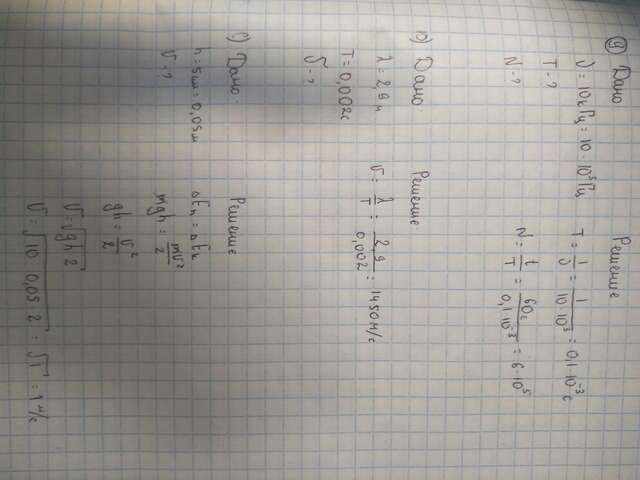 9) Дано
ν = 10кГц = 10·10³Гц
T - ?
N - ?
Решение
T = 1/ν = 1/10·10³ = 0,1·10⁻³ с
N = t/T = 60с/0,1·10⁻³ = 6·10⁵
Дано:
λ = 2,9м
T = 0,002с
υ - ?
Решение
υ = λ/T = 2,9/0,002 = 1450м/с
Дано:
h = 5см = 0,05м
υ - ?
Решение
ΔEп = ΔEк
mgh = mυ²/2
gh = υ²/2
υ = √gh2
υ = √10 0,05 2 = √1 = 1м/с